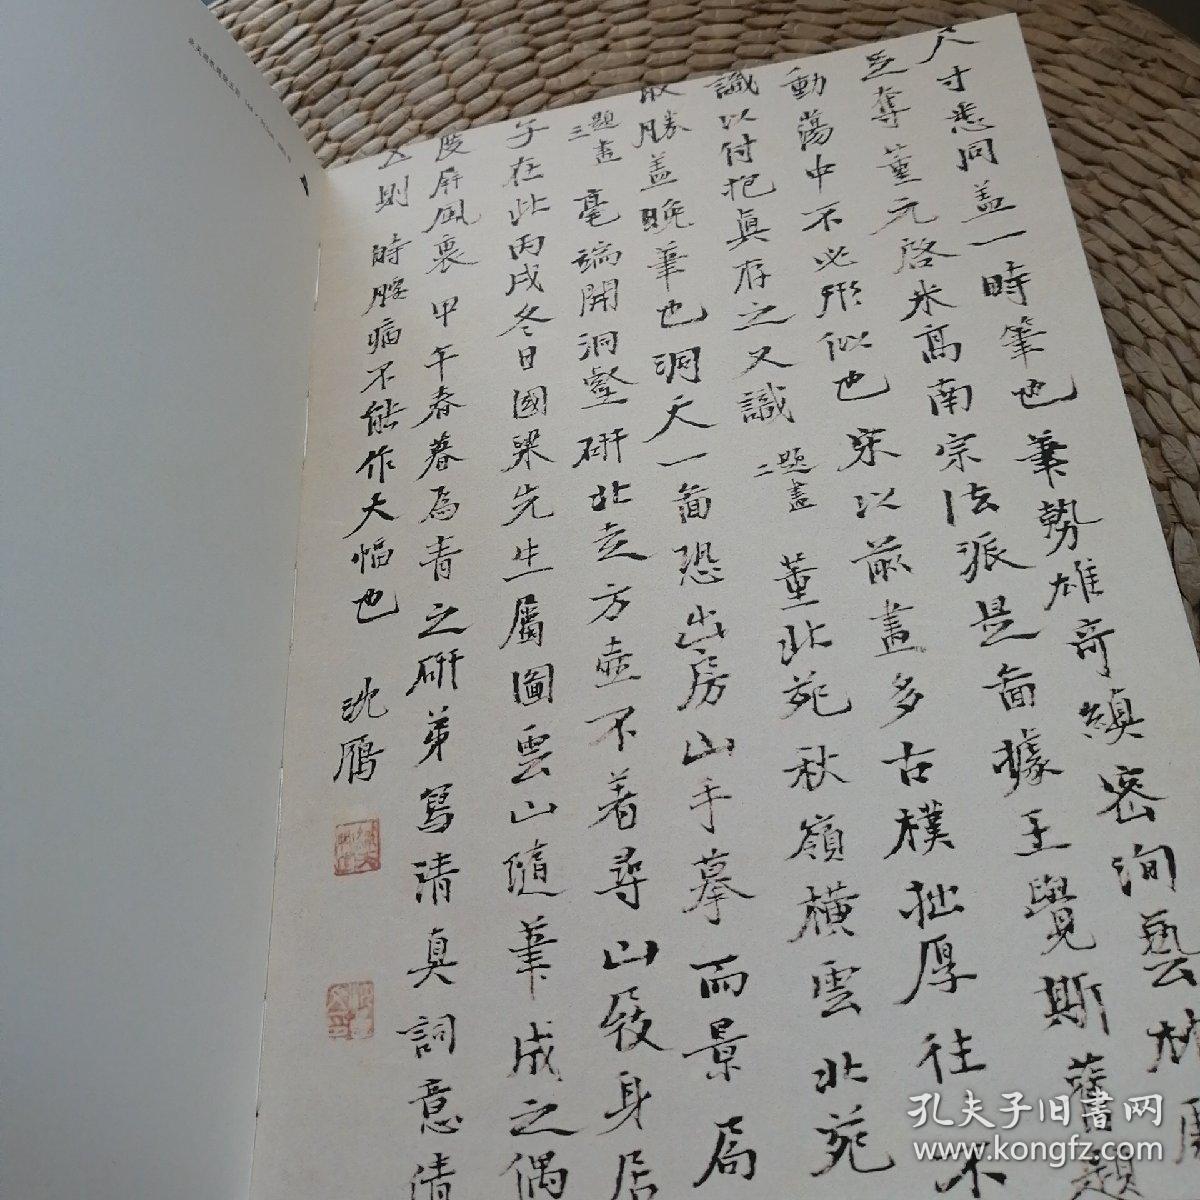 尺寸悉同盖一時筆也筆勢雄奇縝密洵藝林
足奪董元啓米高南宗法派是啚據王覺斯舊題
動蕩中不必形似也宋以前畫多古樸拙厚往不
識以付抱真存之又識 題畫二 董北苑秋嶺橫雲北苑
取勝盖晚筆也洞天一啚恐出房山手摹而景局
題畫三 毫端開洞壑研北走方壺不着尋山屐身居
予在此丙戌冬日國梁先生屬圖雲山隨筆成之偶
度屏風裏 甲午春暮為青之研弟寫清真詞意倩
五則 時腕痛不能作大幅也 沈鴈
孔夫子旧書网
www.kongfz.com